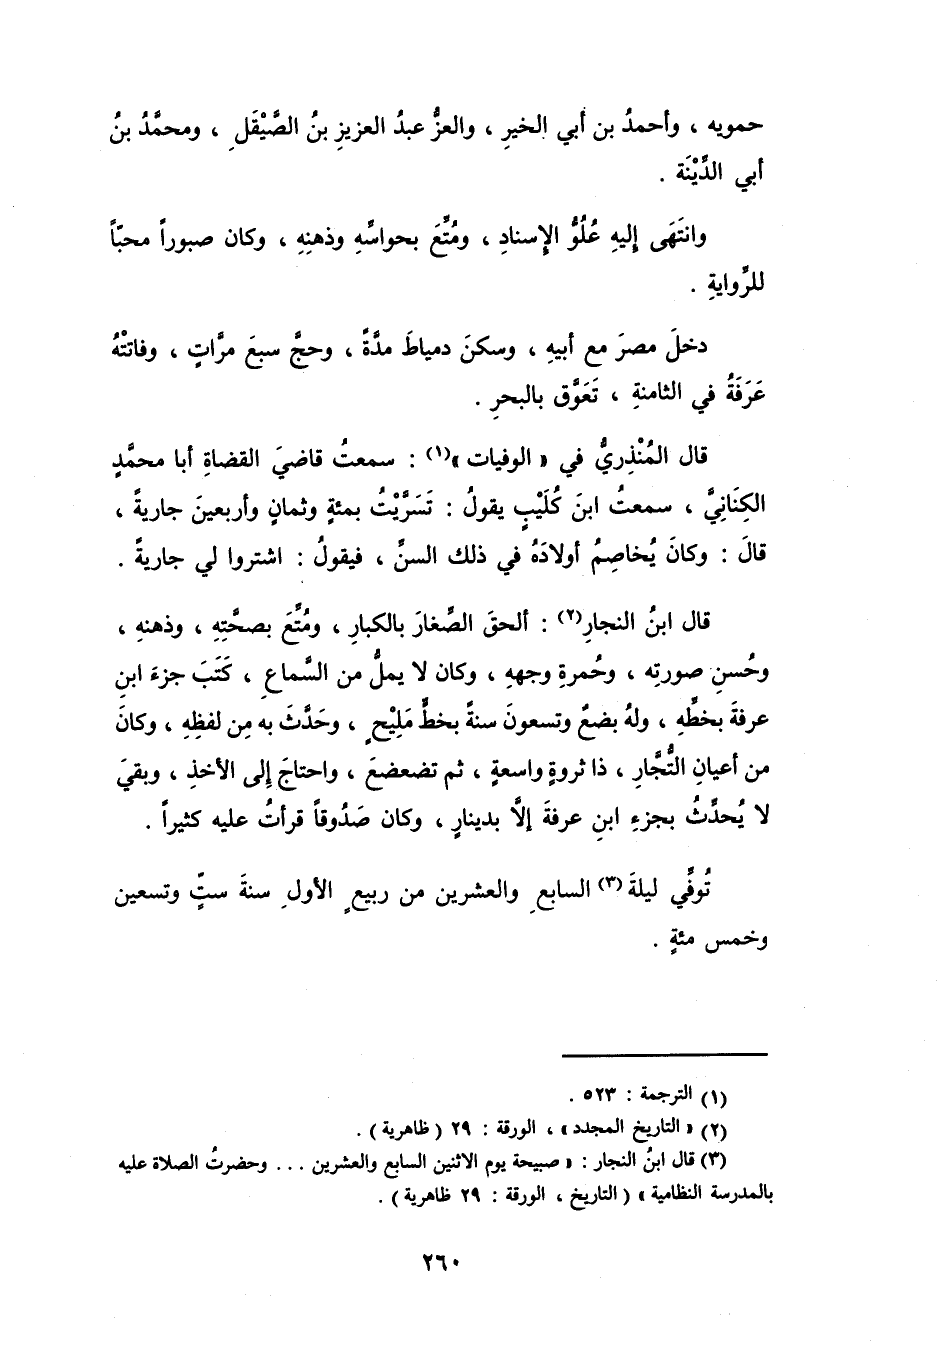 حمويه ، وأحمدُ بن أبي الخيرِ ، والعزُّ عبدُ العزيزِ بنُ الصَّيْقَلِ ، ومحمَّدُ بنُ
أبي الدَّيْنَة .
وانتَهَى إليهِ عُلُوُّ الإسنادِ ، ومُتِّعَ بحواسِّهِ وذهنِهِ ، وكان صبوراً محبّاً
للرِّوايةِ .
دخلَ مصرَ مع أبيهِ ، وسكنَ دمياطَ مدَّةً ، وحجَّ سبعَ مرَّاتٍ ، وفاتتْهُ
عَرَفَةُ في الثامنةِ ، تَعَوَّق بالبحرِ .
قال المُنْذِريُّ في « الوفيات »(١) : سمعتُ قاضيَ القضاةِ أبا محمَّدٍ
الكِنَانِيَّ ، سمعتُ ابنَ كُلَيْبٍ يقولُ : تَسَرَّيْتُ بمئةٍ وثمانٍ وأربعينَ جاريةً ،
قالَ : وكانَ يُخاصِمُ أولادَهُ في ذلك السنِّ ، فيقولُ : اشتروا لي جاريةً .
قال ابنُ النجارِ(٢) : ألحقَ الصِّغارَ بالكبارِ ، ومُتِّعَ بصحَّتِهِ ، وذهنه ،
وحُسنِ صورتِه ، وحُمرةِ وجههِ ، وكان لا يملُّ من السَّماعِ ، كَتَبَ جزءَ ابنِ
عرفةَ بخطِّهِ ، ولهُ بضعٌ وتسعونَ سنةً بخطٍّ مَلِيْحٍ ، وحَدَّثَ به مِن لفظِهِ ، وكانَ
من أعيانِ التُّجَّارِ ، ذا ثروةٍ واسعةٍ ، ثم تضعضعَ ، واحتاجَ إلى الأخذِ ، وبقيَ
لا يُحدِّثُ بجزءِ ابنِ عرفةَ إلَّا بدينارٍ ، وكان صَدُوقاً قرأتُ عليه كثيراً .
تُوفِّي ليلةَ(٣) السابعِ والعشرين من ربيعٍ الأولِ سنةَ ستٍّ وتسعين
وخمس مئةٍ .
(١) الترجمة : ٥٢٣ .
(٢) « التاريخ المجدد » ، الورقة : ٢٩ ( ظاهرية ) .
(٣) قال ابنُ النجار : « صبيحة يوم الاثنين السابع والعشرين ... وحضرتُ الصلاة عليه
بالمدرسة النظامية » ( التاريخ ، الورقة : ٢٩ ظاهرية ) .
٢٦٠